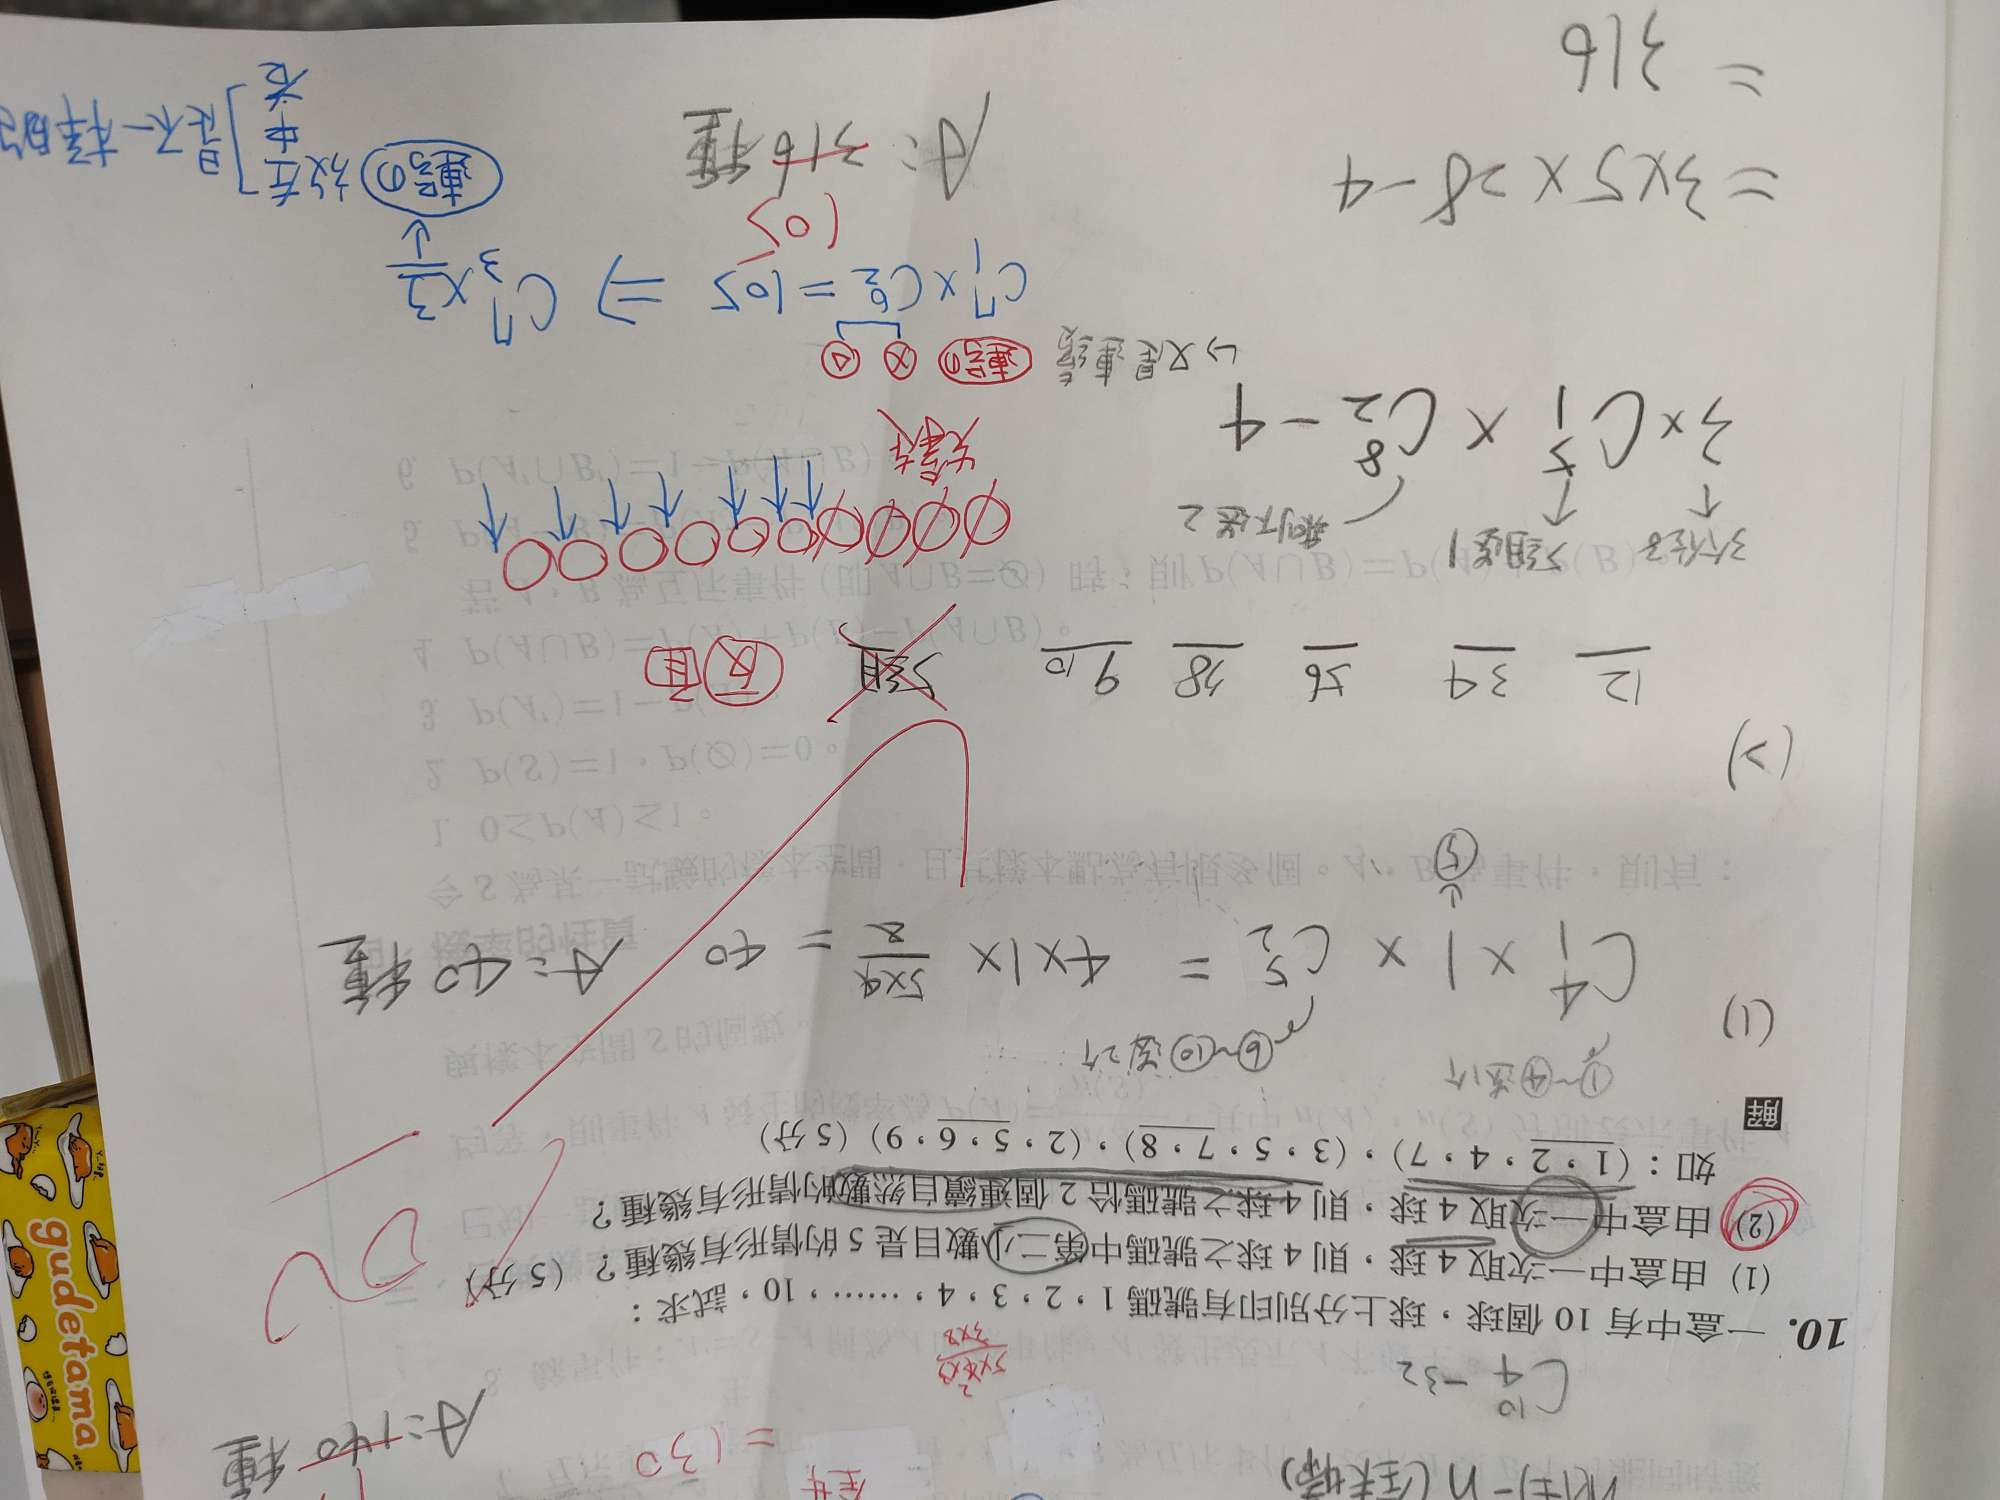 n(全)-n(
全
=130
A:140種
C¹⁰₄ -32
10. 一盒中有 10 個球，球上分別印有號碼 1，2，3，4，……，10，試求：
(1) 由盒中一次取 4 球，則 4 球之號碼中第二小數目是 5 的情形有幾種？（5 分）
(2) 由盒中一次取 4 球，則 4 球之號碼恰 2 個連續自然數的情形有幾種？
如：(1，2，4，7)，(3，5，7，8)，(2，5，6，9)（5 分）
解
①~④選1个
⑥~⑩選2个
(1) C⁴₁ × 1 × C⁵₂ = 4×1× 5×4/2 = 40 A:40種
⑤
(2)
12 34 56 78 910 5組
反面
3个位子 5組選1 剩下選2
3×C⁵₁ × C⁸₂ -4
↳又是連續
拿走
連號の X △
C⁷₁×C⁶₂ =105 ⇒ C⁷₃×3
=3×5×28-4
105
A:316種
連號の 放左中右 是不一樣的
=316
gudetama